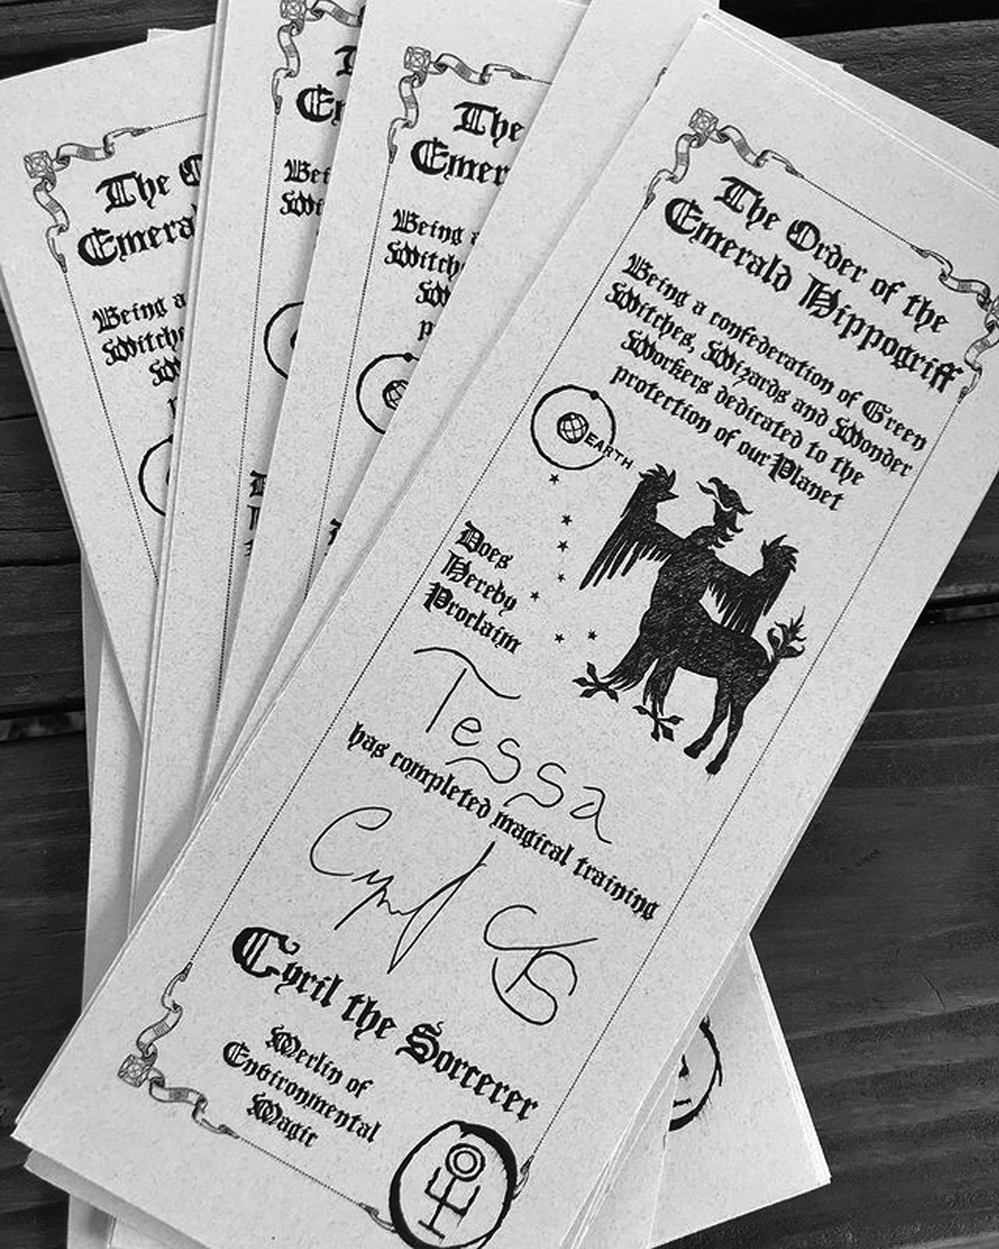 The Order of the
Emerald Hippogriff
Being a confederation of Green
Witches, Wizards and Wonder
Workers dedicated to the
protection of our Planet
EARTH
Does
Hereby
Proclaim
Tessa
has completed magical training
Cyril CS
Cyril the Sorcerer
Merlin of
Environmental
Magic
The
Emer
Being a
Witch
The
Emera
Being a
Witche